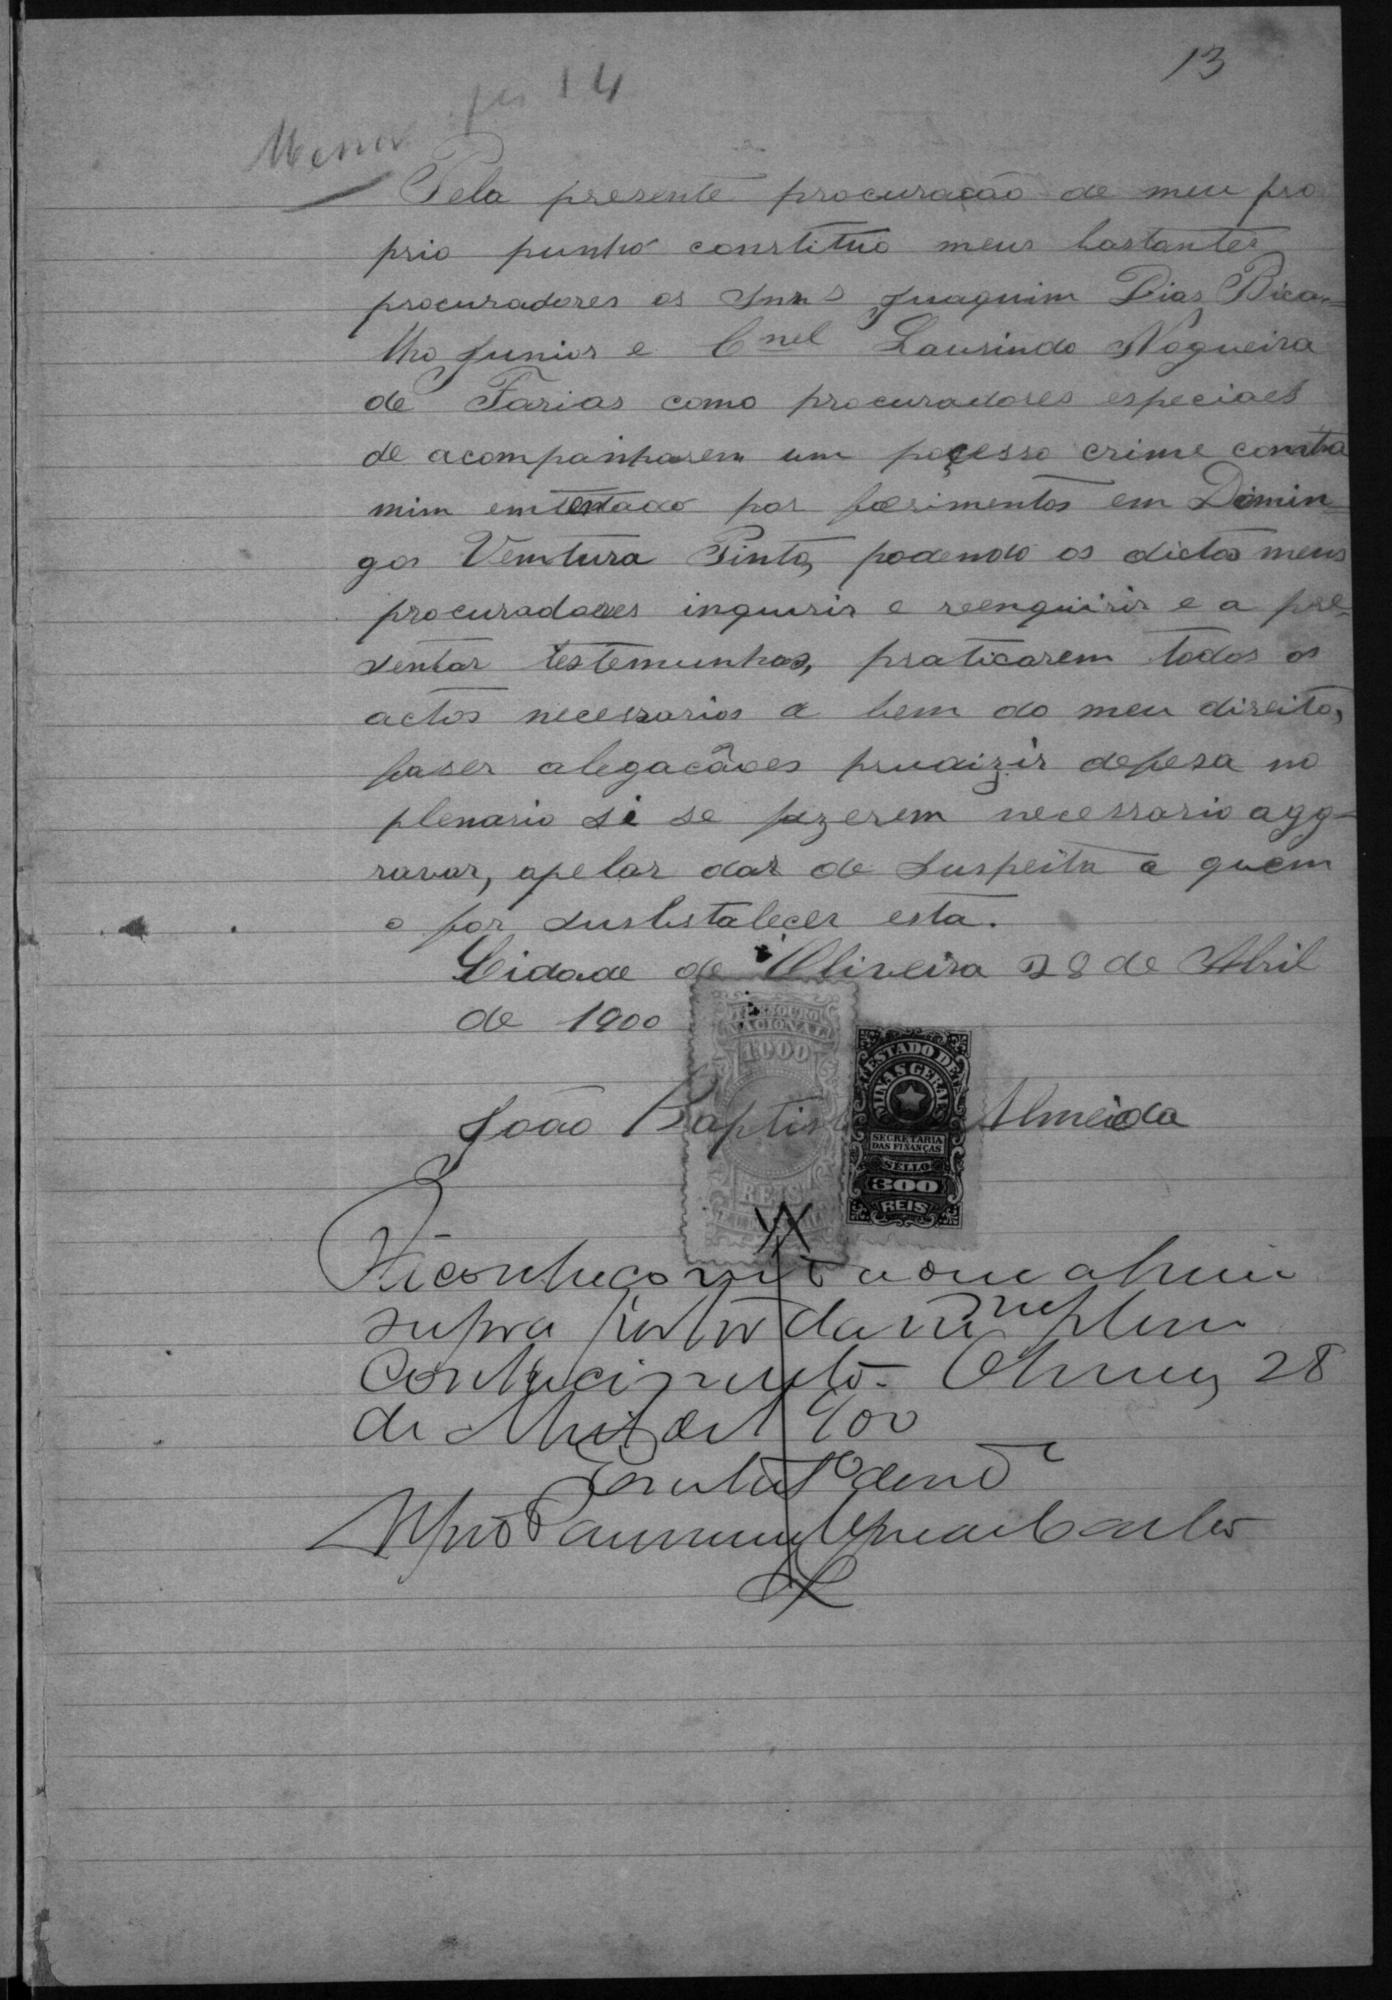 13
fls 14
Pela presente procuração de meu pro
prio punho constituo meus bastantes
procuradores os Snrs Juaquim Dias Bica-
lho Junior e Cnel Laurindo Nogueira
de Farias como procuradores especiaes
de acompanharem um pocesso crime contra
mim emtentado por foerimentos em Domin-
gos Vemtura Pinto, podendo os dictos meus
procuradores inquirir e reenquirir e a pre-
sentar testemunhas, praticarem todos os
actos necessarios a bem do meu direito,
faser alegacãoes pruuizir defesa no
plenario si se fazerem necessario agg-
ravar, apelar dar de suspeito a quem
o for susbstalecer esta.
Cidade de Oliveira 28 de Abril
de 1900
THESOURO
NACIONAL
1000
REIS
ESTADO DE
MINAS GERAES
SECRETARIA
DAS FINANÇAS
SELLO
300
REIS
João Baptista Almeida
Riconheço a firma
supra por ter da mesma pleno
Conhecimento. Olivera, 28
de Abril de 1900
Em test.o de verd.e